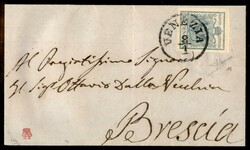 VENEZIA
Al Pregiatissimo Signore
Il Sigr Ottavio Dalla Vecchia
Brescia